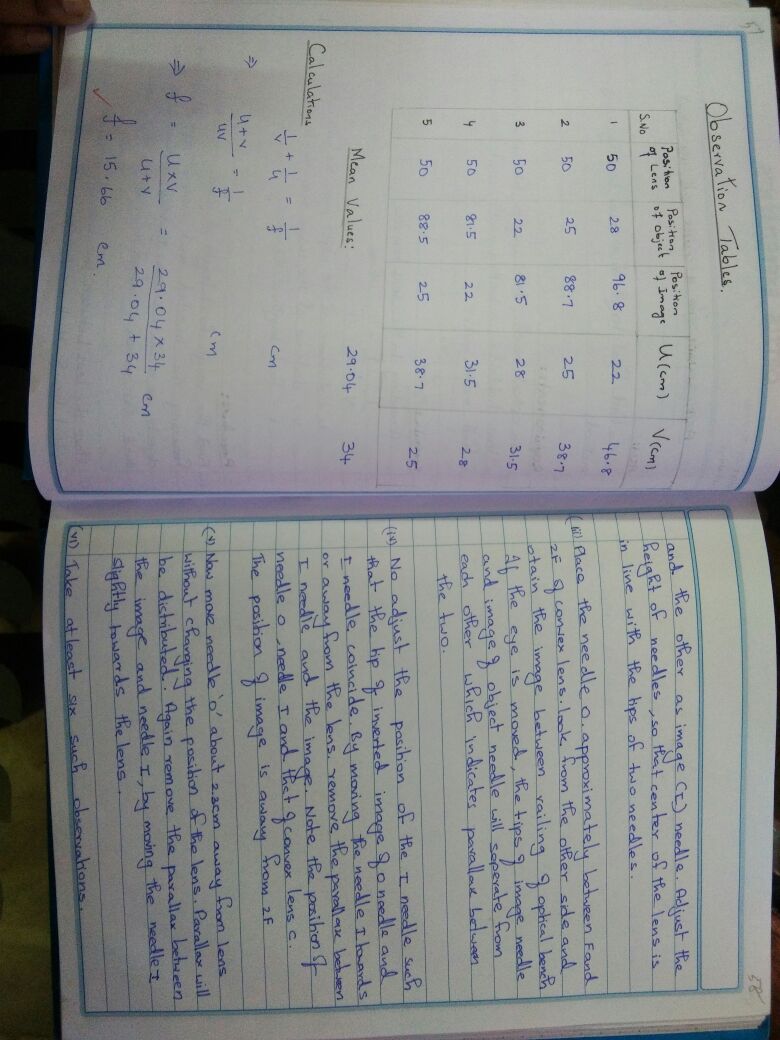 57
Observation Tables.
S.No Position of Lens Position of Object Position of Image U(cm) V(cm)
1 50 28 96.8 22 46.8
2 50 25 88.7 25 38.7
3 50 22 81.5 28 31.5
4 50 81.5 22 31.5 28
5 50 88.5 25 38.7 25
Mean Values: 29.04 34
Calculations
1/v + 1/u = 1/f cm
⇒ u+v/uv = 1/f cm
⇒ f = uxv/u+v = 29.04 x 34/29.04 + 34 cm
f = 15.66 cm.
58
and the other as image (I) needle. Adjust the
height of needles, so that center of the lens is
in line with the tips of two needles.
(iii) Place the needle O, approximately between F and
2F of convex lens. look from the other side and
otain the image between railing of optical bench
If the eye is moved, the tips of image needle
and image of object needle will seperate from
each other which indicates parallax between
the two.
(iv) No adjust the position of the I needle such
that the tip of inverted image of O needle and
I needle coincide. By moving the needle I towards
or away from the lens, remove the parallax between
I needle and the image. Note the position of
needle O, needle I and that of convex lens C.
The position of image is away from 2F
(v) Now move needle 'O' about 2.3cm away from lens
without changing the position of the lens. Parallax will
be distributed. Again remove the parallax between
the image and needle I, by moving the needle I
slightly towards the lens.
(vi) Take atleast six such observations.